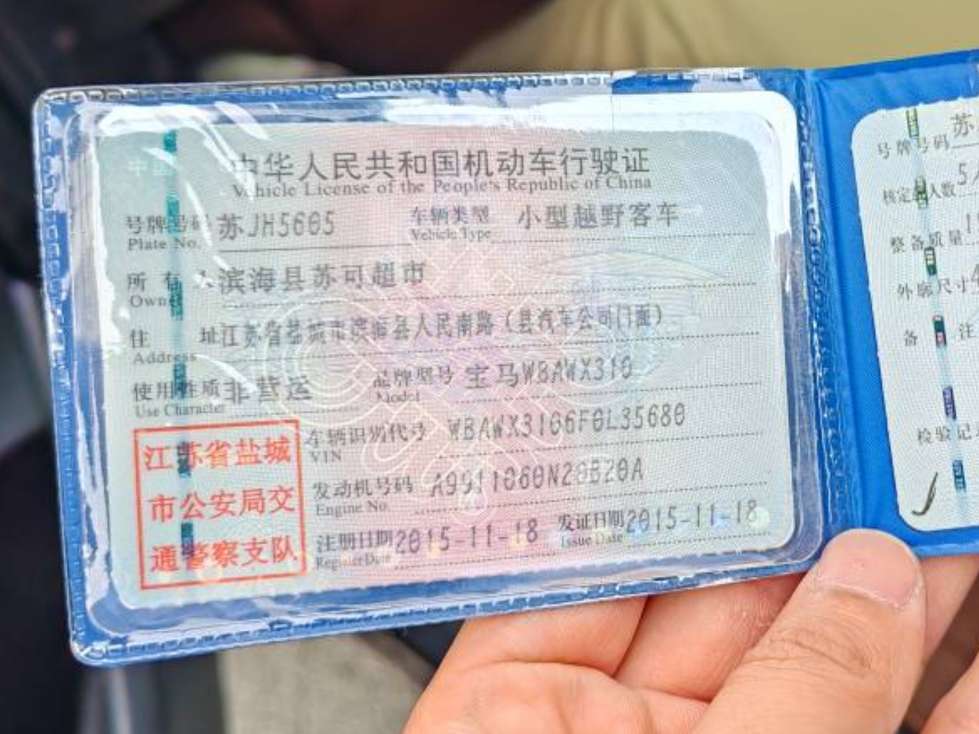 中华人民共和国机动车行驶证
Vehicle License of the People's Republic of China
号牌号码 苏JH5605 车辆类型 小型越野客车
Plate No. Vehicle Type
所有人 滨海县苏可超市
Owner
住址 江苏省盐城市滨海县人民南路(县汽车公司门面)
Address
使用性质 非营运 品牌型号 宝马WBAWX310
Use Character Model
车辆识别代号 WBAWX3106F0L35680
VIN
发动机号码 A9911060N20B20A
Engine No.
注册日期 2015-11-18 发证日期 2015-11-18
Register Date Issue Date
江苏省盐城
市公安局交
通警察支队
号牌号码 苏
核定 人数 5
整备质量
外廓尺寸
备注
检验记